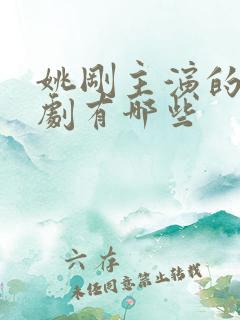 姚剛主演的
劇有哪些
六存
未经同意禁止转载